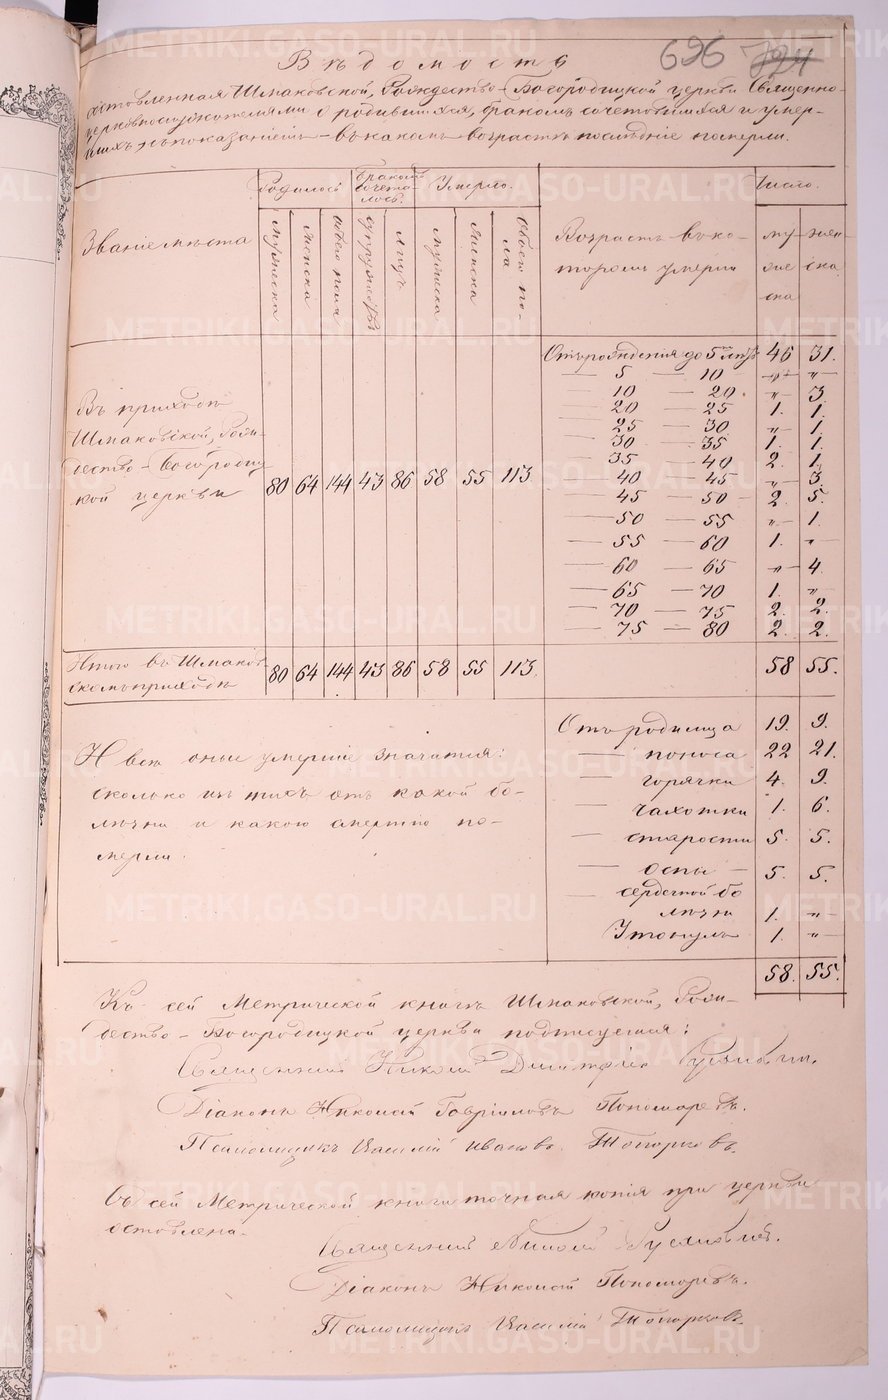 696 724
Вѣдомость
составленная Шмаковской, Рождество-Богородицкой церкви Священно-
церковнослужителями о родившихся, бракомъ сочетавшихся и умер-
шихъ съ показаніемъ – въ какомъ возрастѣ послѣдніе померли.
Званіе мѣста
Родилось
Бракомъ сочета-
лось.
Умерло.
Возрастъ въ ко-
торомъ умерли
Число.
мужеска
женска
обоего пола
супружествъ
лицъ
мужеска
женска
обоего по-
ла
му-
же
ска
жен-
ска
Въ приходѣ
Шмаковской, Рож-
дество-Богородиц-
кой церкви
80 64 144 43 86 58 55 113.
Отъ рожденія до 5 лѣтъ 46 31.
— 5 — 10 „ „
— 10 — 20 „ 3.
— 20 — 25 1. 1.
— 25 — 30 „ 1.
— 30 — 35 1. 1.
— 35 — 40 2. 1.
— 40 — 45 „ 3.
— 45 — 50 2. 5.
— 50 — 55 „ 1.
— 55 — 60 1. „
— 60 — 65 „ 4.
— 65 — 70 1. „
— 70 — 75 2. 2.
— 75 — 80 2. 2.
Итого въ Шмаков-
скомъ приходѣ
80 64 144 43 86 58 55 113.
58 55.
И всѣ оные умершіе значатся:
сколько изъ нихъ отъ какой бо-
лѣзни и какою смертію по-
мерли.
Отъ родимца 19. 9.
— поноса 22 21.
— горячки 4. 9.
— чахотки 1. 6.
— старости 5. 5.
— оспы — 5. 5.
— сердечной бо
лѣзни 1. „
Утонулъ 1. „
58. 55.
Къ сей Метрической книгѣ Шмаковской, Рож-
дество-Богородицкой церкви подписуемся:
Священникъ Николай Димитріевъ
Діаконъ Николай Гавріиловъ Пономаревъ.
Псаломщикъ Василій Ивановъ Топорковъ.
Съ сей Метрической книги точная копія при церкви
оставлена.
Священникъ Николай
Діаконъ Николай Пономаревъ.
Псаломщикъ Василій Топорковъ.
METRIKI.GASO-URAL.RU